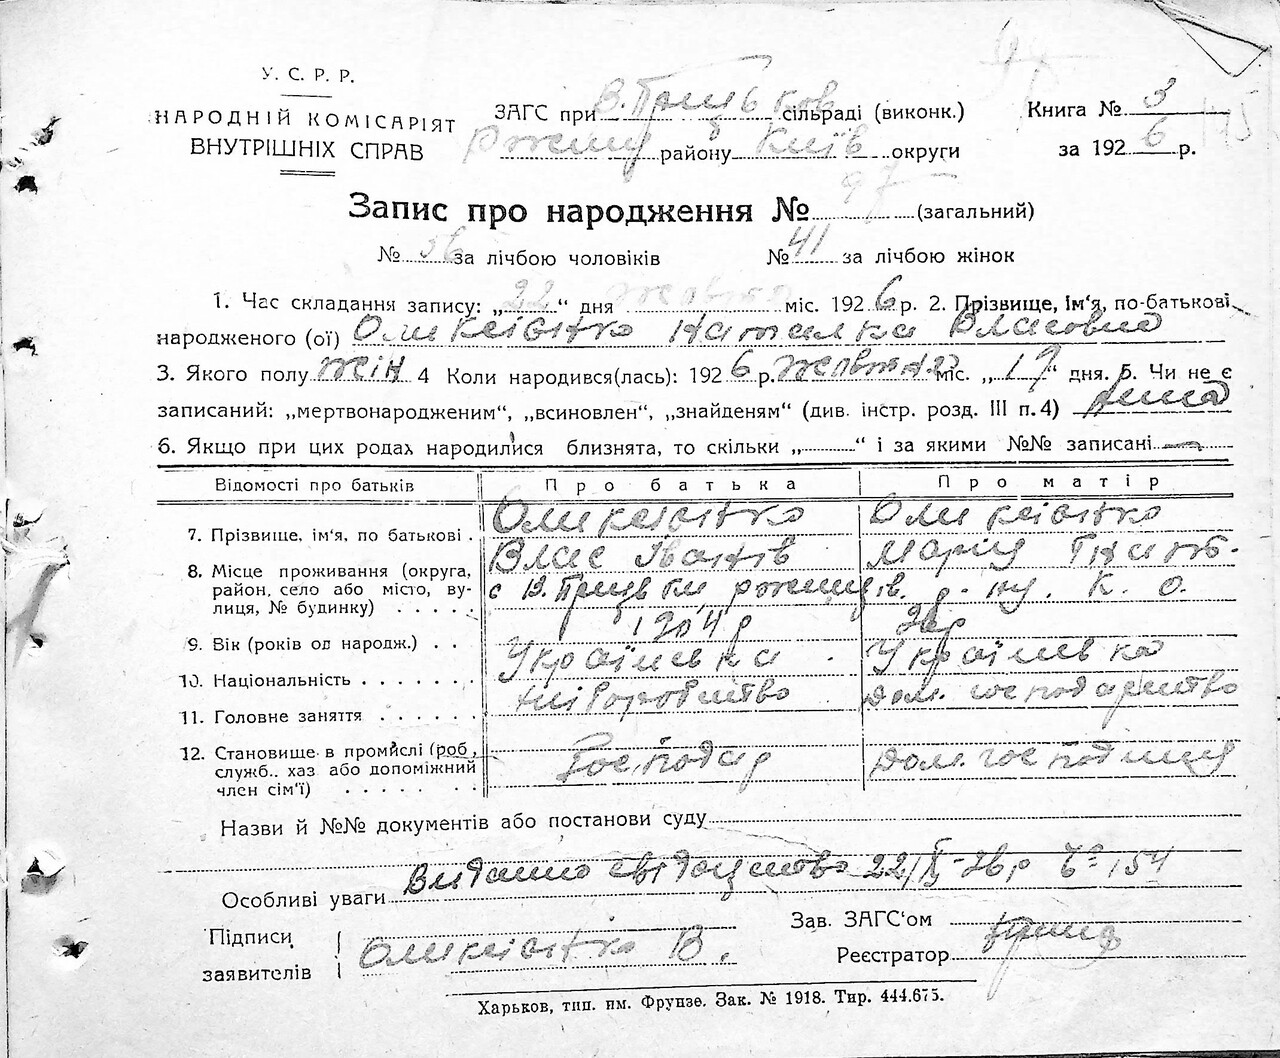 У. С. Р. Р.
НАРОДНІЙ КОМІСАРІЯТ
ВНУТРІШНІХ СПРАВ
ЗАГС при В. Прицьков сільраді (виконк.)
району Київ округи
Книга № 3
за 1926 р.
Запис про народження № 97 (загальний)
№ 56 за лічбою чоловіків № 41 за лічбою жінок
1. Час складання запису: „22“ дня жовтня міс. 1926 р. 2. Прізвище, ім'я, по-батькові
народженого (ої) Наталка Власовна
3. Якого полу жін 4 Коли народився(лась): 1926 р. жовтня міс. „17“ дня. 5. Чи не є
записаний: „мертвонародженим“, „всиновлен“, „знайденям“ (див. інстр. розд. III п. 4)
6. Якщо при цих родах народилися близнята, то скільки „ “ і за якими №№ записані
Відомості про батьків Про батька Про матір
7. Прізвище, ім'я, по батькові .
Влас Іванів Марія Гнат.
8. Місце проживання (округа,
район, село або місто, ву-
лиця, № будинку) . . . . .
с В. Прицьки К. О.
9. Вік (років од народж.) . . 1904 р
10. Національність . . . . . . . Українська Українська
11. Головне заняття . . . . . . хліборобство дом. господарство
12. Становище в промислі (роб,
служб.. хаз або допоміжний
член сім'ї) . . . . . . .
Господар дом. господиня
Назви й №№ документів або постанови суду
Особливі уваги Видано свідоцтво 22/X-26 р № 154
Підписи
заявителів В.
Зав. ЗАГС'ом
Реєстратор
Харьков, тип. им. Фрунзе. Зак. № 1918. Тир. 444.675.